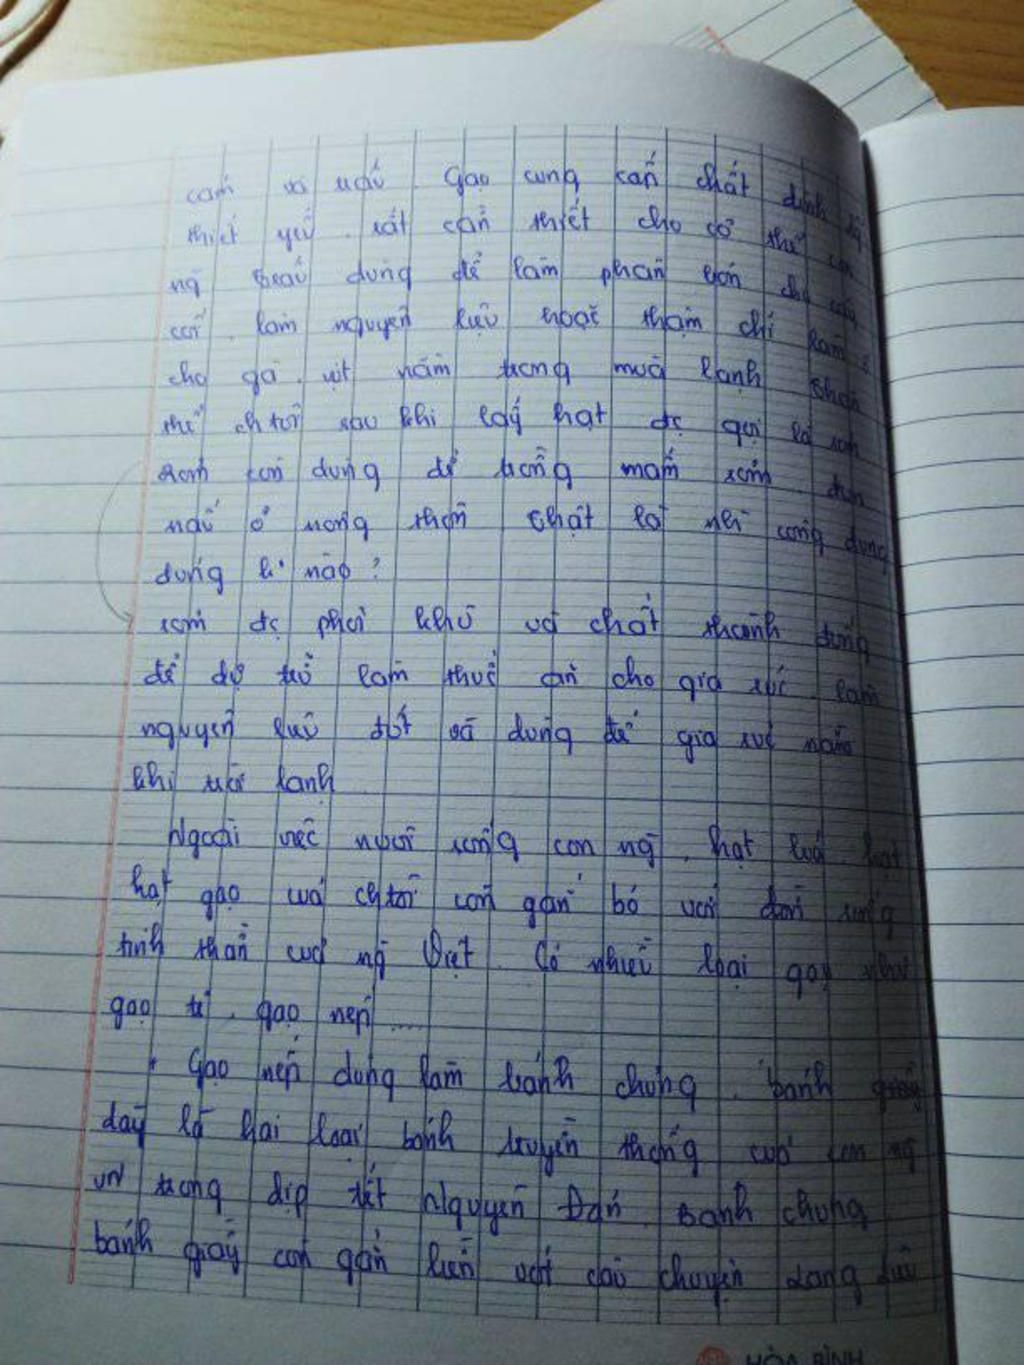 cám và trấu. Gạo cung cấp chất dinh
thiết yếu. rất cần thiết cho cơ thể con
ng Trấu dùng để làm phân bón cho cây
cối. làm nguyên liệu hoặc thậm chí làm ổ
cho gà. vịt nằm trong mùa lạnh. Thân
thể ch tôi sau khi lấy hạt đc gọi là rơm
Rơm còn dùng để trồng nấm rơm. đun
nấu ở nông thôn Thật là nhi công dụng
đúng k nào?
rơm đc phơi khô và chất thành đống
để dự trữ làm thức ăn cho gia súc. làm
nguyên liệu đốt và dùng để gia súc nằm
khi trời lạnh
Ngoài việc nuôi sống con ng. hạt lúa
hạt gạo của ch tôi còn gắn bó với đời sống
tinh thần của ng Việt. Có nhiều loại gạo như
gạo tẻ. gạo nếp .....
+ Gạo nếp dùng làm bánh chưng. bánh giầy
đây là hai loại bánh truyền thống của con ng
VN trong dịp tết Nguyên Đán. Bánh chưng
bánh giầy còn gắn liền với câu chuyện Lang Liêu
HÒA BÌNH